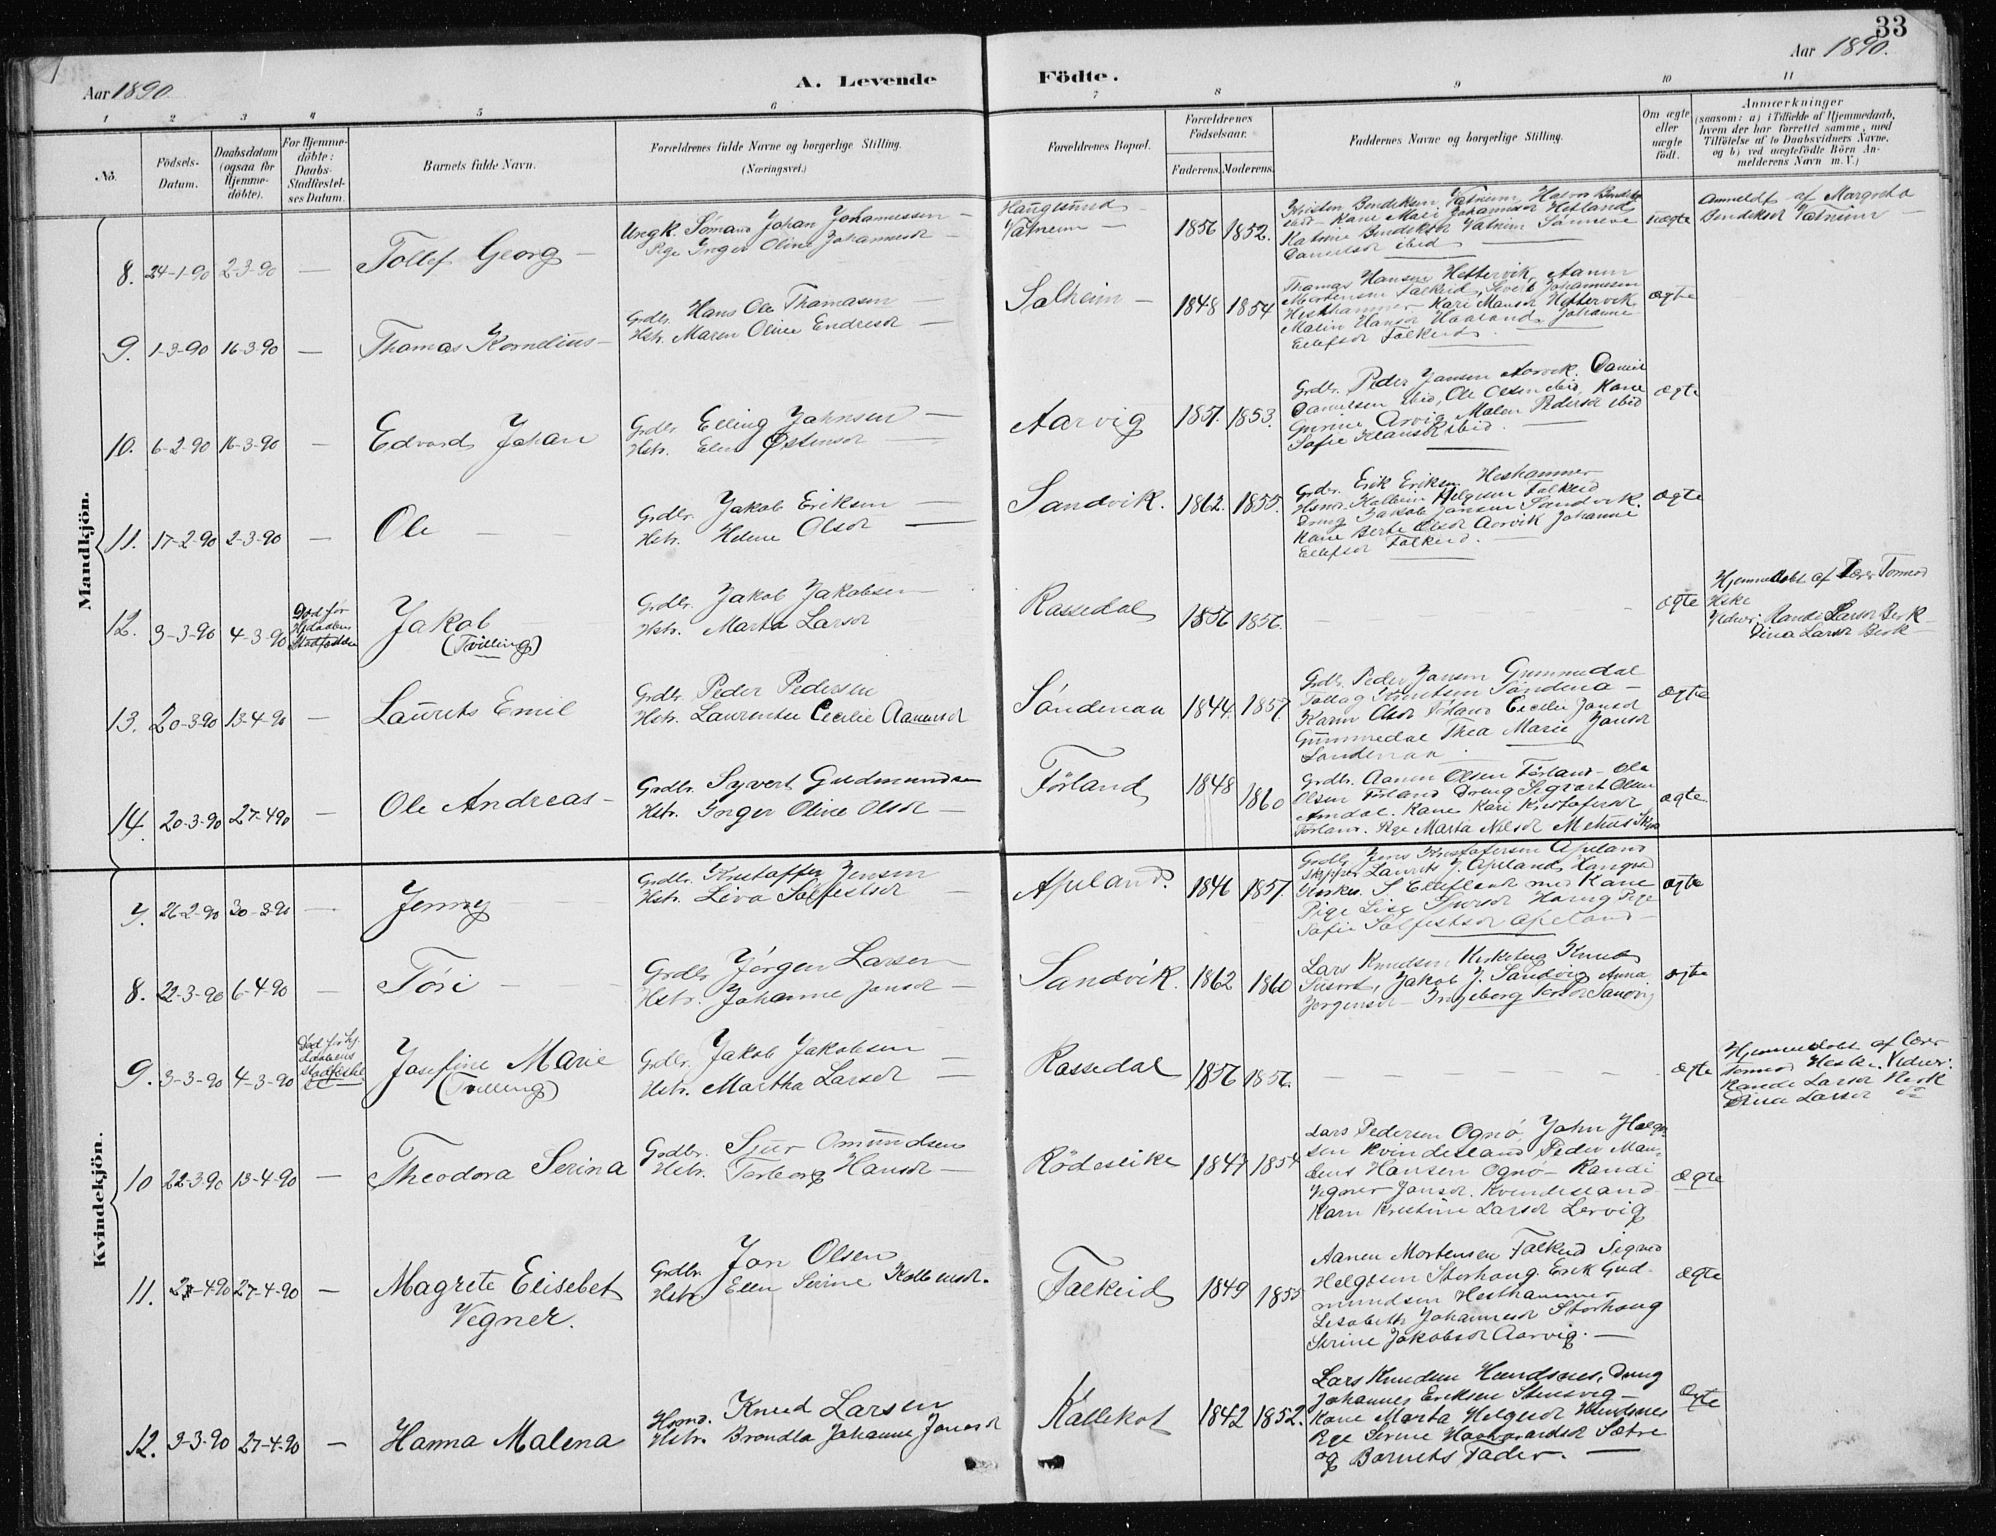 33
Aar 1890.
A. Levende
Födte.
Aar 1890.
1 2 3 4 5 6 7 8 9 10 11
No.
Födsels-
Datum.
Daabsdatum
(ogsaa for
Hjemme-
döbte).
For Hjemme-
döbte:
Daabs-
Stadfæstel-
ses Datum.
Barnets fulde Navn.
Forældrenes fulde Navne og borgerlige Stilling.
(Næringsvei.)
Forældrenes Bopæl.
Forældrenes
Födselsaar.
Faderens.
Moderens.
Faddernes Navne og borgerlige Stilling.
Om ægte
eller
uægte
födt.
Anmærkninger
(saasom: a) i Tilfælde af Hjemmedaab,
hvem der har forrettet samme, med
Tilföielse af to Daabsvidners Navne,
og b) ved uægtefödte Börn An-
melderens Navn m. V.)
Mandkjön.
8. 24-1-90 2-3-90 — Tollef Georg —
Ungk. Sømand Johan Johannessen —
Pge Inger Oline Johannesdr —
Haugesund —
Vatneim —
1856 1852.
Kristen Bendiksen Vatneim,
ibid — Kone Mari Johannesdr Hetland
Katrine Bendiksdr Vatneim
Danielsdr ibid
uægte
Anmeldt af Margretha
Bendiksdr Vatneim —
9. 1-3-90 16-3-90 — Thomas Kornelius —
Grdbr. Hans Ole Thomasen —
Hstr. Maren Oline Endresdr —
Salheim —
1848 1854
Thomas Hansen Hettervik, Aanen
Mortensen Falkeid, Sivert Johannesen
Hesthammer — Kari Mansdr Hettervik
Malin Hansdr Haaland, Johanne
Ellefsdr Falkeid.
ægte
10. 6-2-90 16-3-90 — Edvard Johan
Grdbr. Elling Jahnsen —
Hstr. Elen Østensdr —
Aarvig
1851. 1853.
Grdbr. Peder Jansen Aarvik. Daniel
Danielsen ibid, Ole Olsen ibid, Kone
Gurine Arvig Malen Pedersdr ibid
Sofie Klausdr ibid.
ægte
11. 17-2-90 2-3-90 — Ole — —
Grdbr. Jakob Eriksen —
Hstr. Helene Olsdr —
Sandvik.
1862. 1855.
Grdbr. Erik Eriksen Hesthammer
Helgesen Falkeid
Dreng Jakob Jansen Sandvik.
Kone Berte Olsdr Aarvik Johanne
Ellefsdr Falkeid.
ægte
12. 3-3-90 4-3-90
Død før
Hjdaabens
Stadfæstelse
Jakob
(Tvilling)
Grdbr. Jakob Jakobsen —
Hstr. Marta Larsdr
Rassedal
1856 1856.
— — — —
ægte
Hjemmedøbt af Lærer Tormod
Heske
Vidner: Randi Larsdr Hesk —
Dina Larsdr Hesk —
13. 20-3-90 13-4-90 — Laurits Emil
Grdbr. Peder Pedersen
Hstr. Laurentse Cecilie Aanensdr
Søndenaa
1844. 1857.
Grdbr. Peder Jansen Gummedal
Tollag Knutsen Søndena —
Karen Olsdr Cecilie Jansdr
Gummedal Thea Marie Jansdr
Søndenaa
ægte
14. 20-3-90 27-4 90 — Ole Andreas —
Grdbr. Syvert Gudmundsen
Hstr. Inger Oline Olsdr —
Førland
1848 1860
Grdbr. Aanen Olsen Førland — Ole
Olsen Førland Dreng Sigvart Olsen
Amdal. Kone Kari Kristofersdr
Førland. Pge Marta Nilsdr Mehus
ægte.
Kvindekjön.
7. 26-2-90 30-3-90 — Jenny
Grdbr. Kristoffer Jensen
Hstr. Liva Salfestsdr —
Apeland.
1846 1857.
Grdbr. Jens Kristofersen Apeland
Skipper Laurits J. Apeland,
med Kone
Pige Lise
Sofie Salfestsdr Apeland —
ægte
8. 22-3-90 6-4-90 — Tøri —
Grdbr. Jørgen Larsen
Hstr. Johanne Jansdr —
Sandvik.
1862 1860
Lars Knudsen Kirkeberg Knud
Jakob J. Sandvig Anna
Jørgensdr — Ingeborg Sandvig
ægte
9. 3-3-90 4-3-90
Død før hj.
daabens
stadfæstel
Josefine Marie
(Tvilling)
Grdbr. Jakob Jakobsen —
Hstr. Martha Larsdr —
Rassedal
1856 1856.
— — — — —
ægte
Hjemmedøbt af Lærer
Tormod Heske. Vidner:
Randi Larsdr Hesk
Dina Larsdr do
10 22-3 90 13-4-90 — Theodora Serina
Grdbr. Sjur Omundsen
Hstr. Torborg Hansdr —
Rødeseike
1847 1854
Lars Pedersen Ognø, John Helge-
sen Kvindesland Peder Mau-
Hansen Ognø — Randi
Vegner Jansdr. Kvindesland
Karn Kristine Larsdr Lervig
ægte
11. 27-4-90 27-4-90 — Magrete Elisebet
Vegner.
Grdbr. Jan Olsen
Hstr. Ellen Serine
Falkeid
1849 1855
Aanen Mortensen Falkeid Sigmd
Helgesen Storhaug. Erik Gud-
mundsen Hesthammer
Lisabeth Johannesdr Storhaug
Serine Jakobsdr Aarvig. —
ægte
12. 3-3-90 27-4-90 — Hanna Malena
Hsmd. Knud Larsen
Hstr. Brondla Johanne Jonasdr
Kallekot
1842 1852.
Lars Knudsen Hundsnes, Dreng
Johannes Eriksen Stensvig —
Kone Marta Helgesdr Hundsnes
Pge Serine Haavardsdr Sætre
og Barnets Fader. —
ægte